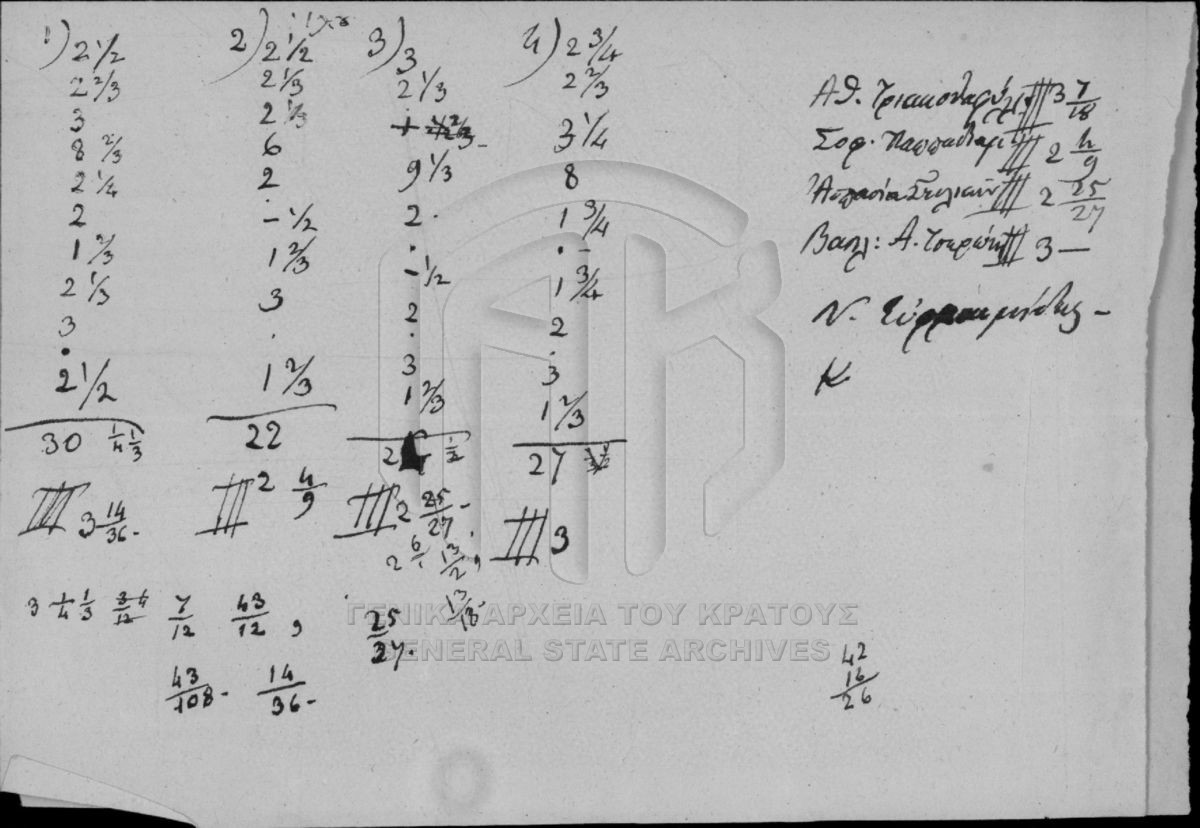 1) 2 1/2
2 2/3
3
8 2/3
2 1/4
2
1 2/3
2 1/3
3
•
2 1/2
30 1/4 1/3
3 14/36-
2) 2 1/2
2 1/3
2 1/3
6
2
- 1/2
1 2/3
3
.
1 2/3
22
2 4/9
3) 3
2 1/3
9 1/3
2.
.
- 1/2
2
.
3
1 2/3
2 1/2
2 25/27-
2 6/ 13/2,
13/18-
4) 2 3/4
2 2/3
3 1/4
8
1 3/4
. -
1 3/4
2
.
3
1 2/3
27
3
3 1/4 1/3 3/12 4 7/12 43/12,
43/108- 14/36-
25/27.
Αθ. 3 7/18
Σοφ. 2 4/9
Ασπασία 2 25/27
Βασιλ: Α. 3 —
Ν.
Κ
42
16
26
ΓΕΝΙΚΑ ΑΡΧΕΙΑ ΤΟΥ ΚΡΑΤΟΥΣ
GENERAL STATE ARCHIVES